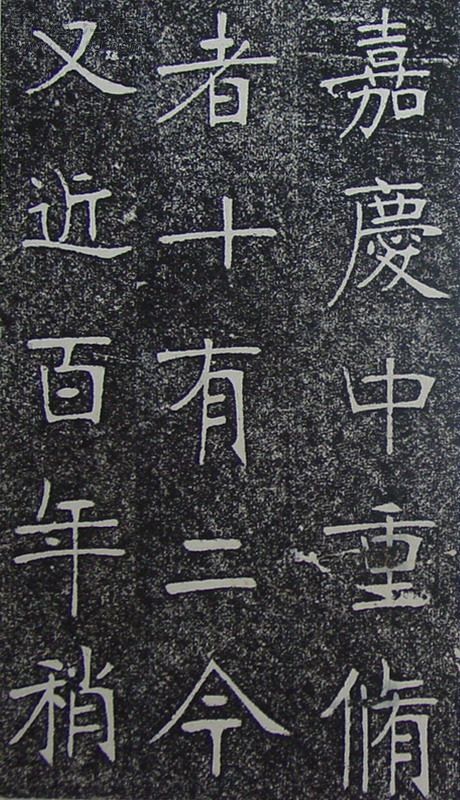 嘉慶中重脩
者十有二今
又近百年稍